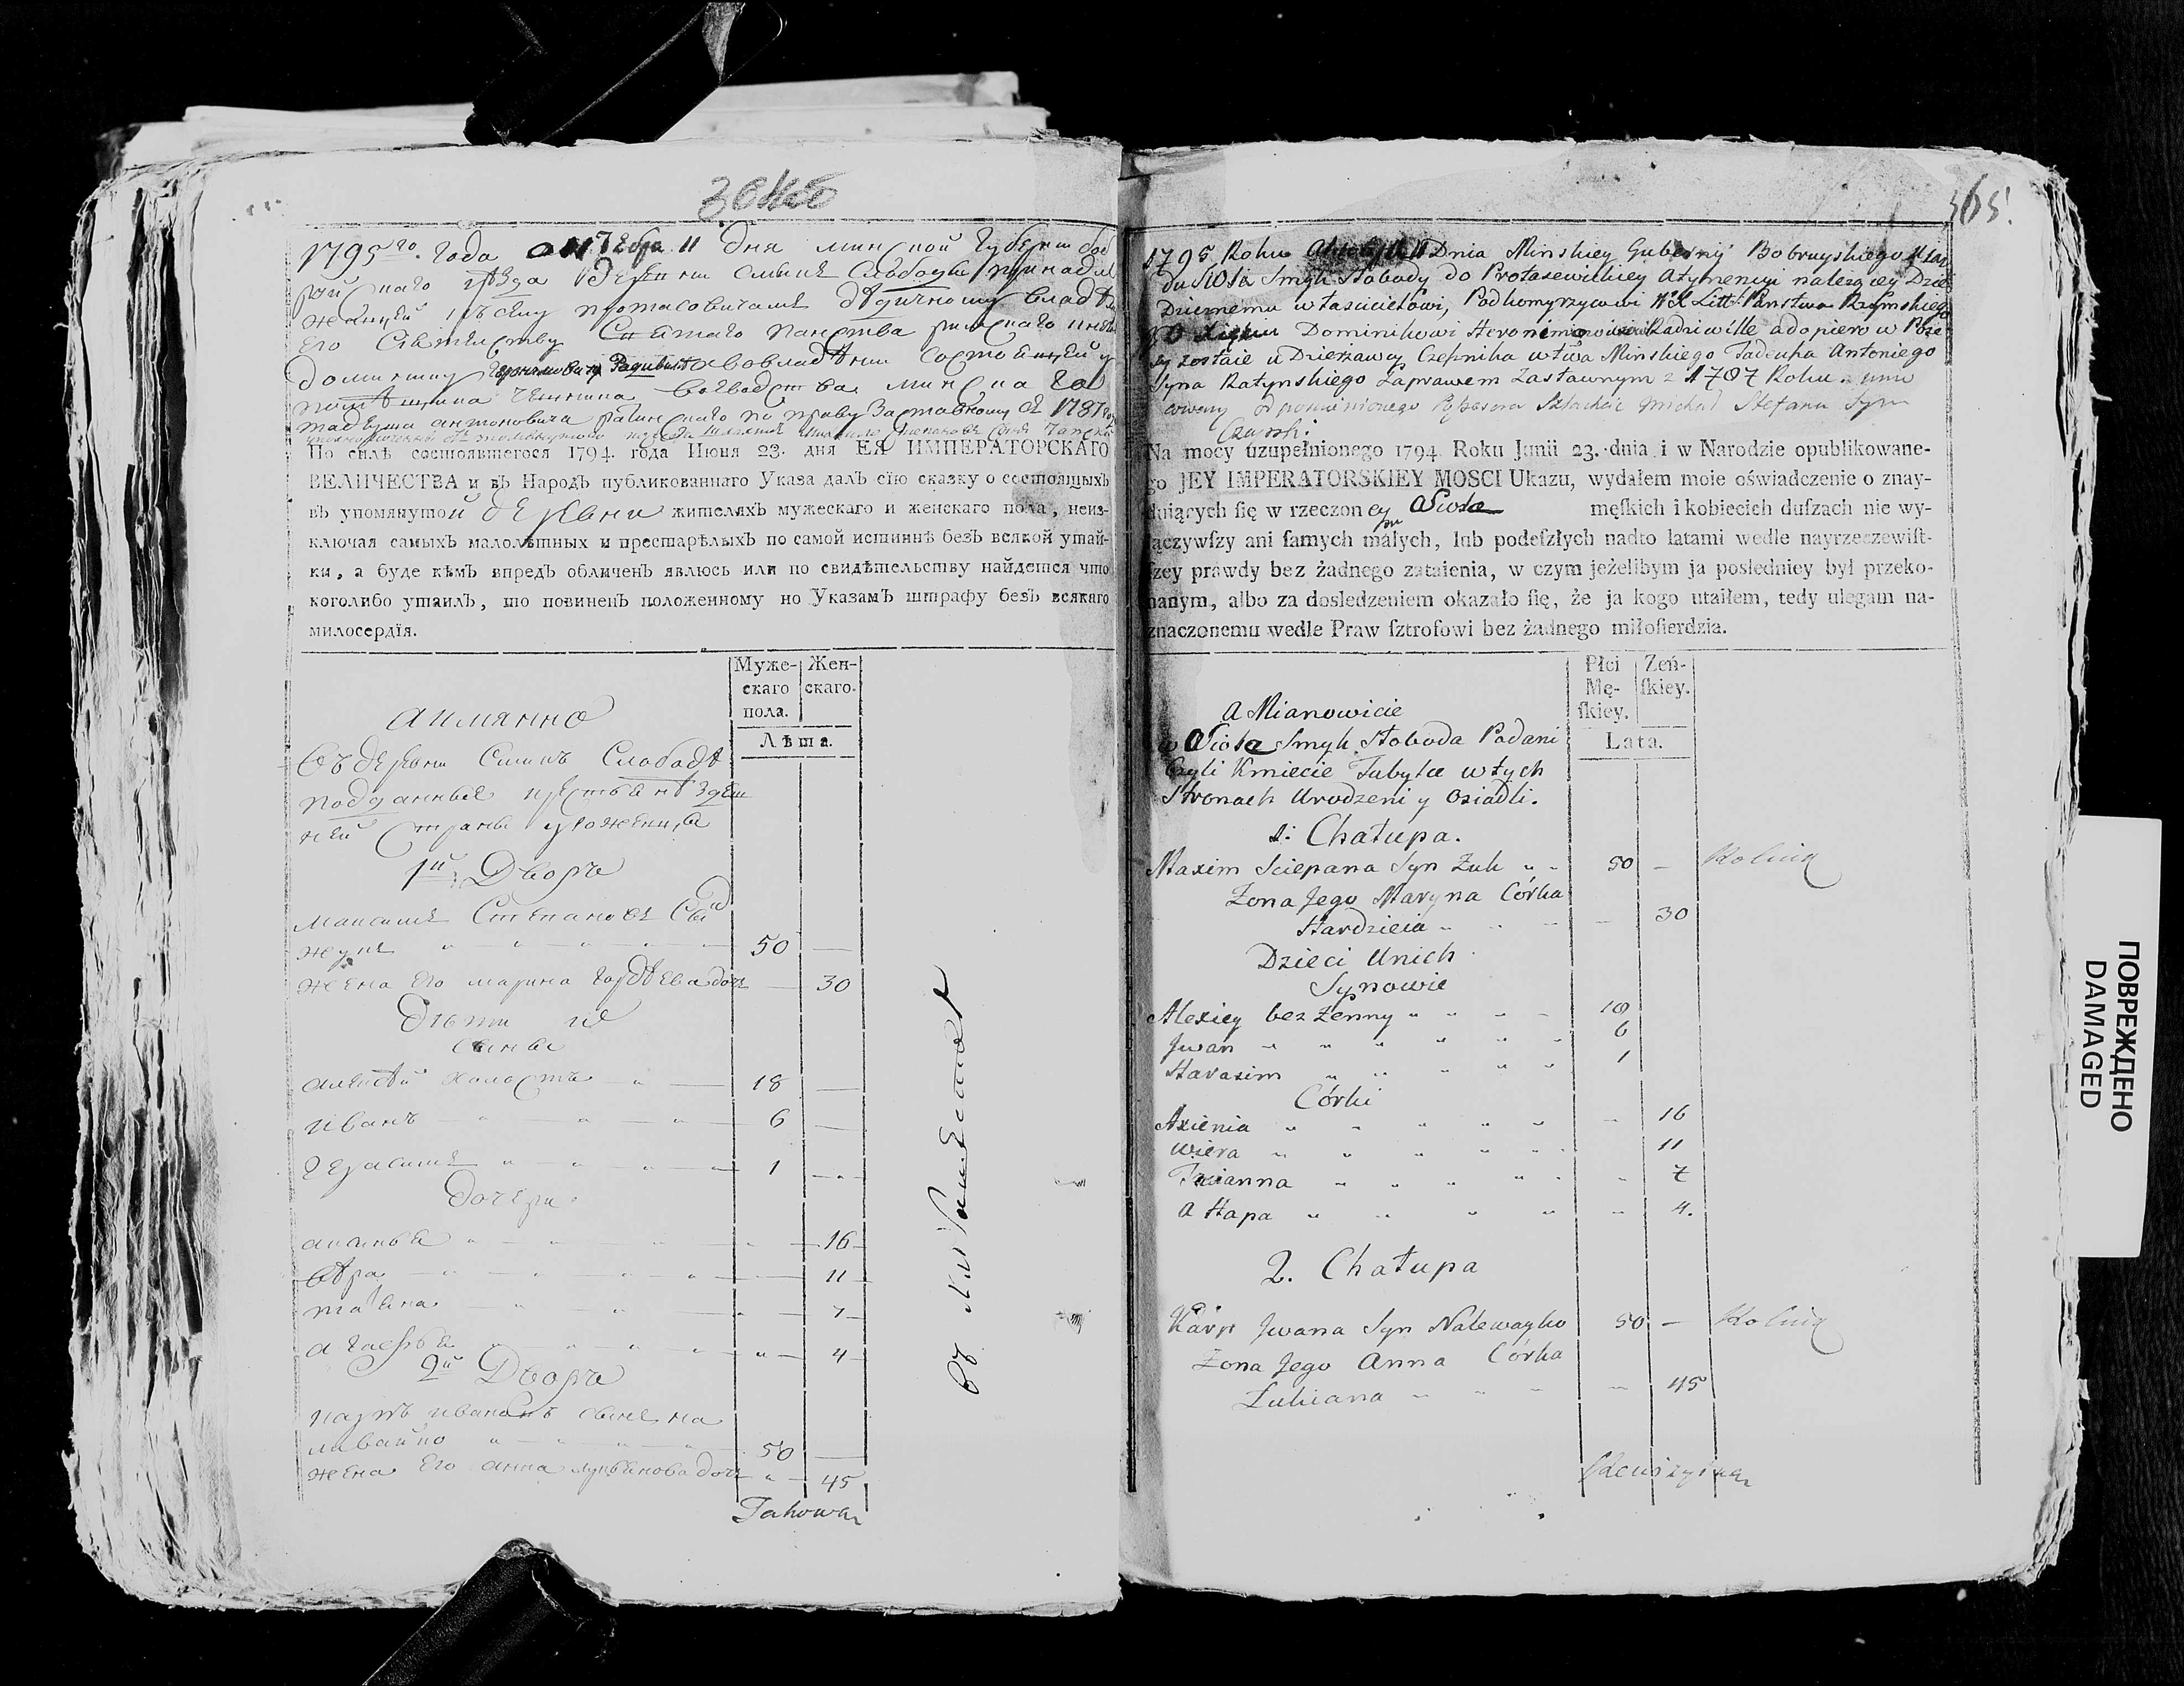 365.
1795го. Года октебра 11 дня минской Губерни боб
руйскаго уезда деревни смыкъ Слободы принадле
жащей къ селу протасовичамъ дедичному владе
Его Сиятелству панства римскаго
доминику геронимовичу Радивилу а во владении состоящей у
чешника воеводства минска го
тадеуша антоновича ратинскаго по праву заставному съ 1787
По силѣ состоявшегося 1794. года Июня 23. дня ЕЯ ИМПЕРАТОРСКАГО
ВЕЛИЧЕСТВА и въ Народъ публикованнаго Указа далъ сїю сказку о состоящыхъ
въ упомянутой деревни жителяхъ мужескаго и женскаго пола, неиз-
ключая самыхъ малолѣтныхъ и престарѣлыхъ по самой истиннѣ безъ всякой утай-
ки, а буде кѣмъ впредъ обличенъ явлюсь или по свидѣтельству найдется что
коголибо утаилъ, то повиненъ положенному по Указамъ штрафу безъ всякаго
милосердїя.
Муже-скаго пола. Жен-скаго.
Лѣта.
а имянно
Въ деревни Смыкъ Слободѣ
подданные крестьянѣ здеш
ней страны уроженца
1й Дворъ
максимъ Степановъ Сынъ
жукъ 50 —
жена Его марина гордѣева дочь — 30
Дѣти ихъ
сынвя
алексѣй холостъ 18 —
иванъ 6 —
герасимъ 1 —
дочери
аксинья 16
вѣра 11
татьяна 7
агафья 4
2й Дворъ
карпъ ивановъ сынъ на
ливайко 50 —
жена Его анна лукьянова дочь 45
1795 Roku Dnia Minskiey Gubernij Bobruyskiego Uiaz
du Sioła Smyk Słobody do Protasewickiey Atynencyi należącey Dzie
Dzicznemu właścicielowi, Podkomyrzycowi W X Litt: Państwa Rzymskiego
Dominikowi Heronimowiczowi Radziwille a dopiero w Posse
zostaie u Dzierżawcy Czesnika wtwa Minskiego Tadeusza Antoniego
Syna Ratynskiego Zaprawem Zastawnym z 1787 Roku.
od pomienionego Possesora Szlachcic Michał Stefana Syn
Czapski.
Na mocy uzupełnionego 1794 Roku Junii 23. dnia i w Narodzie opublikowane-
go JEY IMPERATORSKIEY MOSCI Ukazu, wydałem moie oświadczenie o znay-
duiących ſię w rzeczoney Siola męſkich i kobiecich duſzach nie wy-
łączywſzy ani ſamych małych, lub podeſzłych nadto latami wedle nayrzeczewiſt-
ſzey prawdy bez żadnego zataienia, w czym jeżelibym ja posledniey był przeko-
nanym, albo za dosledzeniem okazało ſię, że ja kogo utaiłem, tedy ulegam na-
znaczonemu wedle Praw ſztrofowi bez żadnego miłoſierdzia.
Płci Mę-ſkiey. Zeń-ſkiey.
Lata.
A Mianowicie
w Siole Smyk Słoboda Podani
Czyli Kmiecie Tubylce w tych
Stronach Urodzeni y Osiadli.
1: Chałupa.
Maxim Sciepana Syn Żuk 50 — Rolnik
Żona Jego Maryna Córka
Hardzieia — 30
Dzieci Unich
Synowie
Alexiey bez Żenny 18
Jwan 6
Harasim 1
Córki
Axienia 16
Wiera 11
Tacianna 7
A Hapa 4.
2. Chałupa
Karp Jwana Syn Nalewayko 50 — Rolnik
Żona Jego Anna Córka
Łukiana — 45
ПОВРЕЖДЕНО
DAMAGED